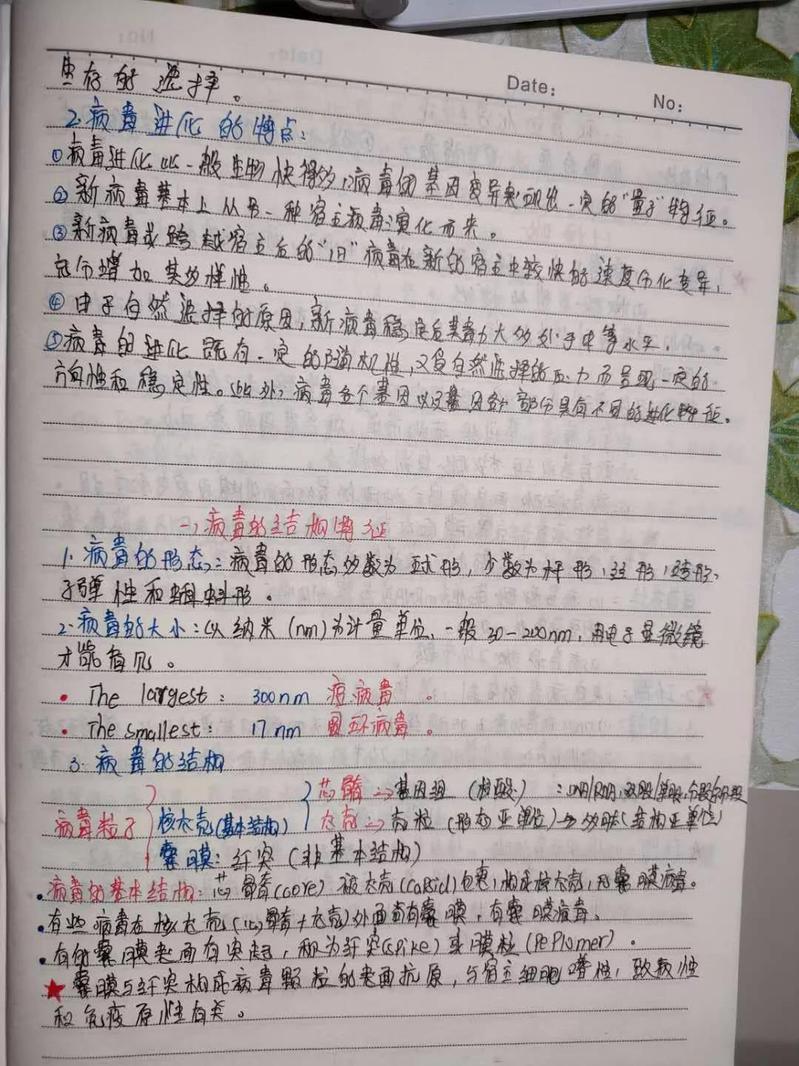 Date:
No:
生存的选择。
2.病毒进化的特点:
①病毒进化比一般生物快得多,病毒的基因变异表现出一定的"量子"特征。
②新病毒基本上从另一种宿主病毒演化而来。
③新病毒或跨越宿主后的"旧"病毒在新的宿主中较快的速度分化变异,
充分增加其多样性。
④由于自然选择的原因,新病毒稳定后其毒力大多处于中等水平.
⑤病毒的进化既有一定的随机性,又受自然选择的压力而呈现一定的
方向性和稳定性。(此外)病毒各个基因以及基因各部分具有不同的进化特征。
一、病毒的结构特征
1.病毒的形态:病毒的形态多数为球形,少数为杆形,丝形,砖形、
子弹性和蝌蚪形。
2.病毒的大小:以纳米(nm)为计量单位、一般30-200nm,用电子显微镜
才能看见。
• The largest: 300nm 痘病毒。
• The smallest: 17nm 圆环病毒。
3.病毒的结构
芯髓→基因组(核酸):DNA/RNA,双股/单股,分段/不分段
病毒粒子 核衣壳(基本结构) 衣壳→壳粒(形态亚单位)→多肽(结构亚单位)
囊膜:纤突(非基本结构)
•病毒的基本结构:芯髓(core)被衣壳(capsid)包裹,构成核衣壳,无囊膜病毒。
•有些病毒在核衣壳(芯髓+衣壳)外面有囊膜,有囊膜病毒。
•有的囊膜表面有突起,称为纤突(spike)或膜粒(Peplomer)。
★囊膜与纤突构成病毒颗粒的表面抗原,与宿主细胞嗜性,致病性
和免疫原性有关。